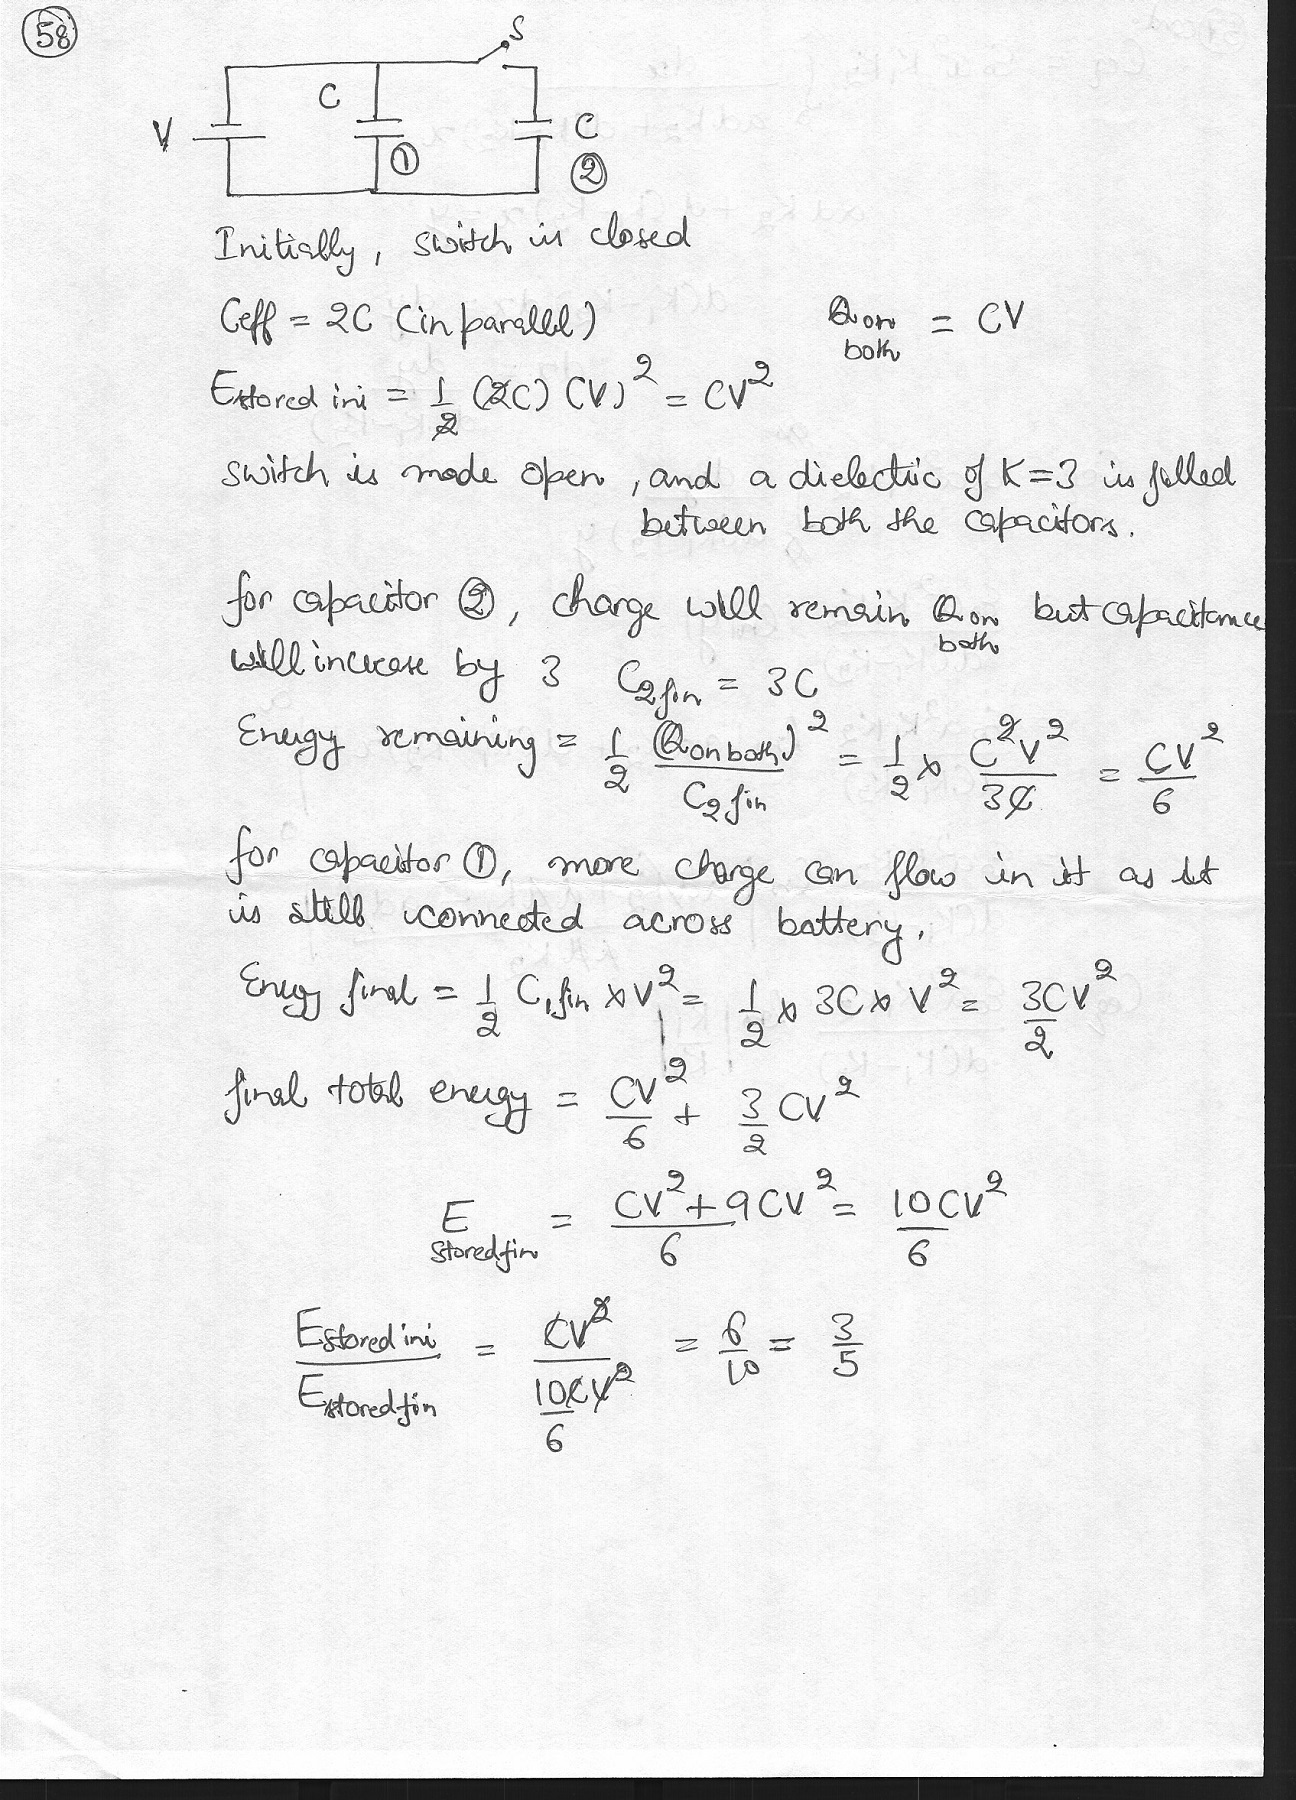 58
S
C
V
C
①
②
Initially, switch is closed
Ceff = 2C (in parallel)
Q on both = CV
Estored ini = 1/2 (2C) (V)² = CV²
switch is made open, and a dielectric of K=3 is filled
between both the capacitors.
for capacitor ②, charge will remain Q on both but capacitance
will increase by 3 C₂fin = 3C
Energy remaining = 1/2 (Q on both)²/C₂fin = 1/2 × C²V²/3C = CV²/6
for capacitor ①, more charge can flow in it as it
is still connected across battery.
Energy final = 1/2 C₁fin × V² = 1/2 × 3C × V² = 3CV²/2
final total energy = CV²/6 + 3/2 CV²
E stored fin = CV²+9CV²/6 = 10CV²/6
Estored ini/Estored fin = CV²/10CV²/6 = 6/10 = 3/5